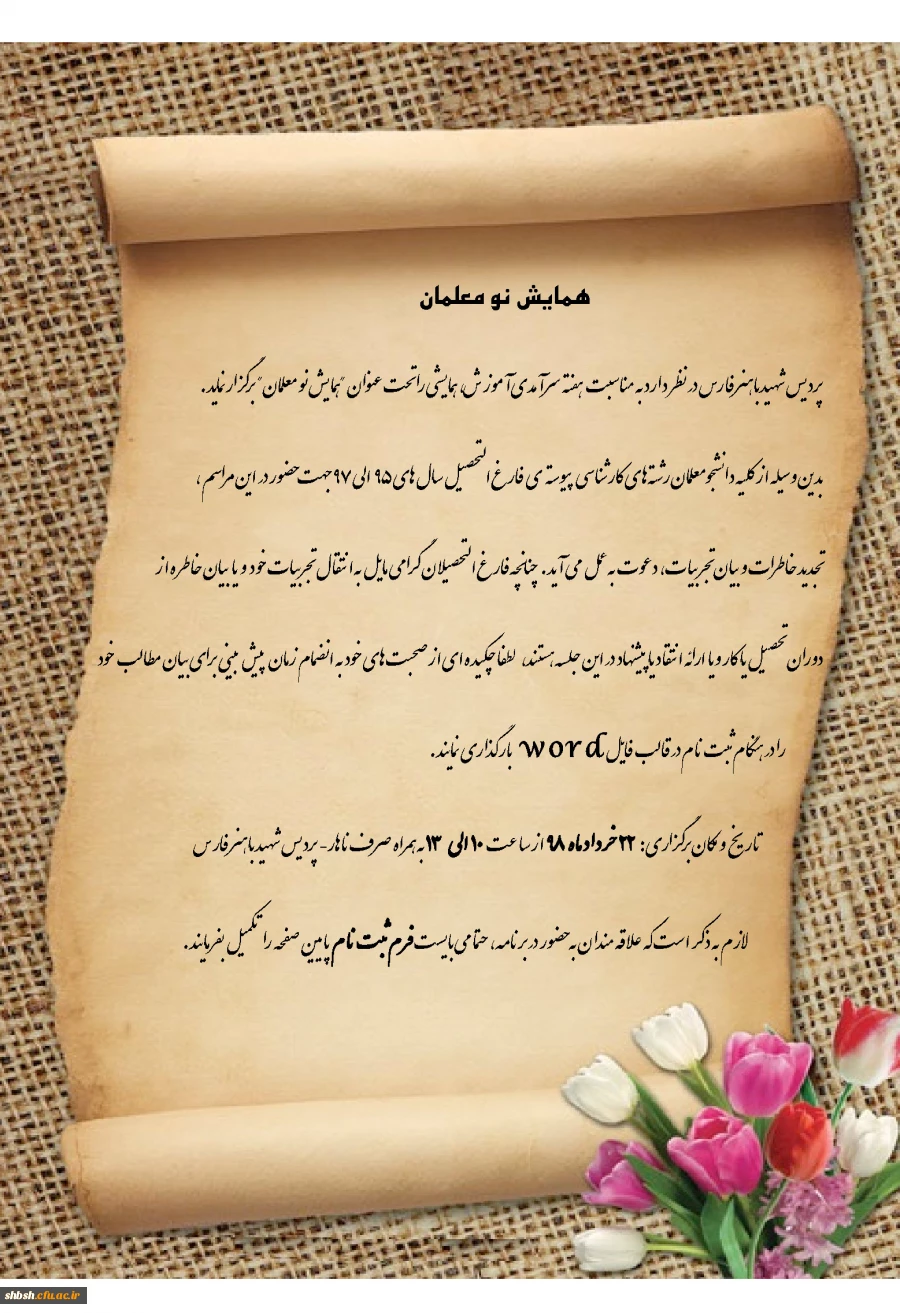 همایش نو معلمان
پردیس شهید باهنر فارس در نظر دارد به مناسبت هفته سرآمدی آموزش، همایشی را تحت عنوان "همایش نو معلمان" برگزار نماید.
بدین وسیله از کلیه دانشجو معلمان رشته های کارشناسی پیوسته ی فارغ التحصیل سال های ۹۵ الی ۹۷ جهت حضور در این مراسم ،
تجدید خاطرات و بیان تجربیات، دعوت به عمل می آید. چنانچه فارغ التحصیلان گرامی مایل به انتقال تجربیات خود و یا بیان خاطره از
دوران تحصیل یا کار و یا ارائه انتقاد یا پیشنهاد در این جلسه هستند، لطفا چکیده ای از صحبت های خود به انضمام زمان پیش بینی برای بیان مطالب خود
را در هنگام ثبت نام در قالب فایل word بارگذاری نمایند.
تاریخ و مکان برگزاری: ۲۲ خرداد ماه ۹۸ از ساعت ۱۰ الی ۱۳ به همراه صرف ناهار - پردیس شهید باهنر فارس
لازم به ذکر است که علاقه مندان به حضور در برنامه، حتما می بایست فرم ثبت نام پایین صفحه را تکمیل بفرمایند.
shbsh.cfu.ac.ir